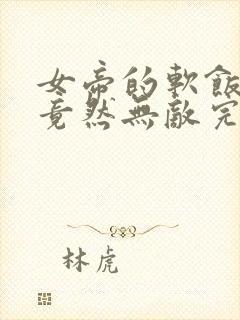 女帝的軟飯
竟然無敵完
林虎